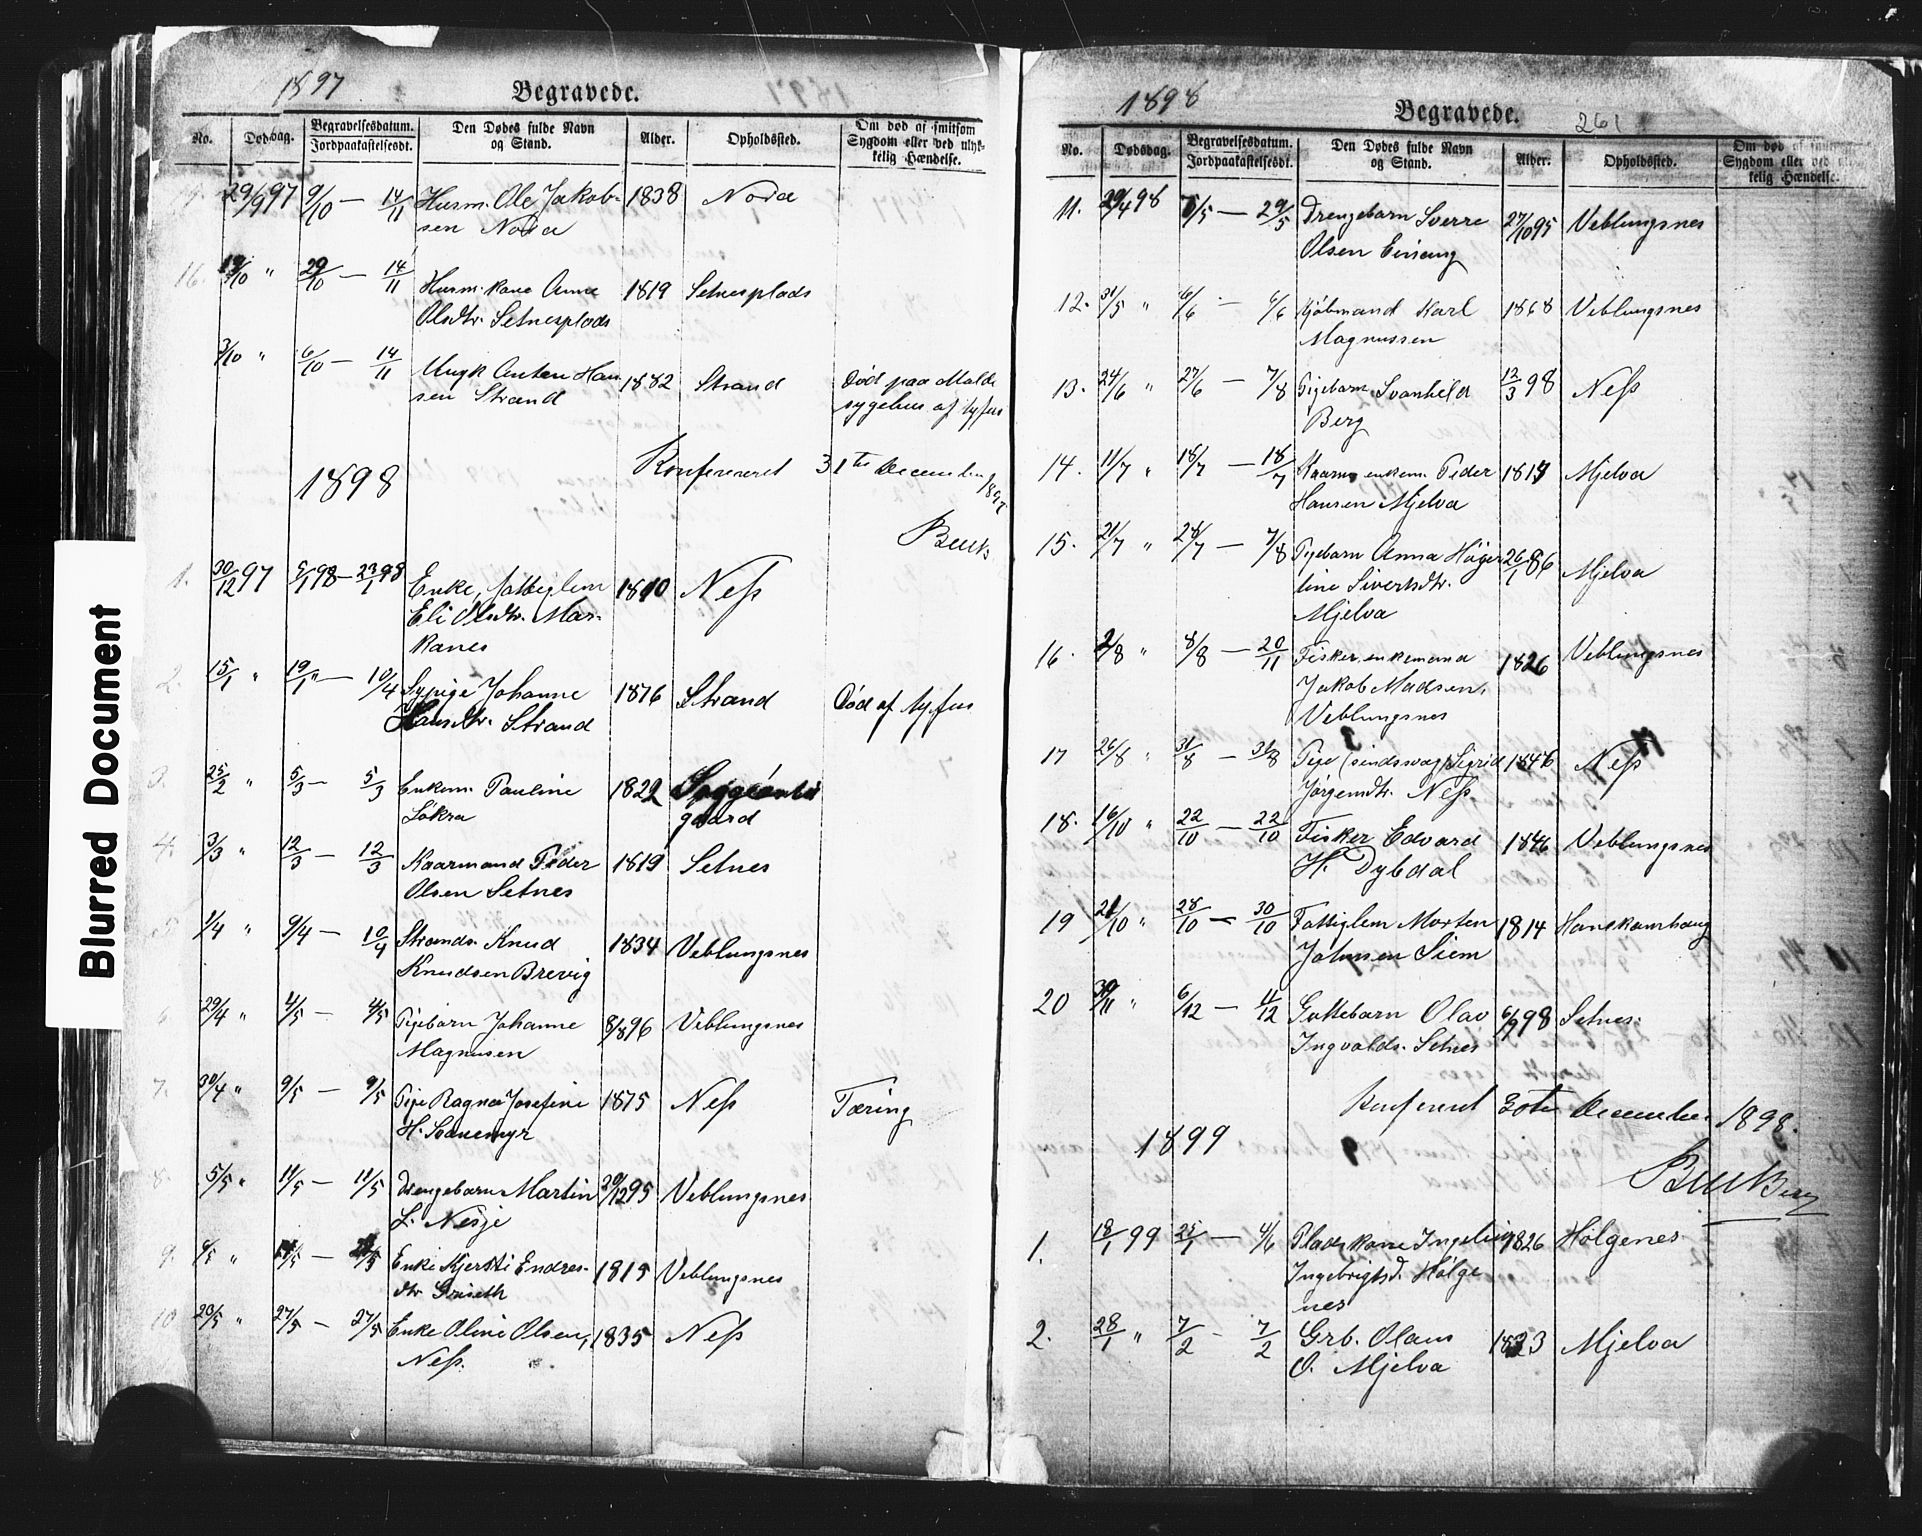 Blurred Document
1897
Begravede.
No. Dødsdag. Begravelsesdatum. Jordpaakastelsesdt. Den Dødes fulde Navn og Stand. Alder. Opholdssted. Om død af smitsom Sygdom eller ved ulykkelig Hændelse.
29/9 97 9/10 — 14/11 Husm. Ole Jakob- 1838 Noda
sen Noda
16. 19/10 " 29/10 — 14/11 Husm. kone Anne 1819 Setnesplads
Olsdtr. Setnesplads
3/10 " 6/10 — 14/11 Ungk Anton Han 1882 Strand Død paa Molde
sen Strand sygehus af tyfus
Konfereret 31te December 1897
1898
Buck
1. 30/12 97 5/1 98 — 23/1 98 Enke, fattiglem 1810 Neſs
Eli Olsdtr. Mar-
kanes
2. 15/1 " 19/1 " — 10/4 Sypige Johanne 1876 Strand Død af tyfus
Hansdtr. Strand
3. 25/2 " 5/3 — 5/3 Enkem. Pauline 1822
Løkra gaard
4. 3/3 " 12/3 — 12/3 Kaarmand Peder 1819 Setnes
Olsen Setnes
5. 1/4 " 9/4 — 10/4 Strands. Knud 1834 Veblungsnes
Knudsen Brevig
6. 29/4 " 4/5 — 4/5 Pigebarn Johanne 8/8 96 Veblungsnes
Magnusen
7. 30/4 " 9/5 — 9/5 Pige Ragna Josefine 1875 Neſs Tæring
H. Sanemyr
8. 5/5 " 11/5 — 11/5 Drengebarn Martin 29/12 95 Veblungsnes
L. Nesje
9. 6/5 " — Enke Kjersti Endres- 1815 Veblungsnes
dtr Griseth
10. 20/5 " 27/5 — 27/5 Enke Oline Olsen, 1835 Neſs
Neſs.
1898
Begravede.
261
No. Dødsdag. Begravelsesdatum. Jordpaakastelsesdt. Den Dødes fulde Navn og Stand. Alder. Opholdssted. Om død af smitsom Sygdom eller ved ulykkelig Hændelse.
11. 29/4 98 5/5 — 29/5 Drengebarn Sverre 27/10 95 Veblungsnes
Olsen Einang
12. 31/5 " 6/6 — 6/6 Kjøbmand Karl 1868 Veblungsnes
Magnussen
13. 24/6 " 27/6 — 7/8 Pigebarn Svanhild 12/3 98 Neſs
Berg
14. 11/7 " 18/7 — 18/7 Kaarm, enkem. Peder 1817 Mjelva
Hansen Mjelva
15. 21/7 " 28/7 — 7/8 Pigebarn Anna Høger 26/1 86 Mjelva
line Sivertsdtr.
Mjelva
16. 2/8 " 8/8 — 20/11 Fisker, enkemand 1826 Veblungsnes
Jakob Madsen,
Veblungsnes
17 26/8 " 31/8 — 31/8 Pige (sindssvag) Sigrid 1846 Neſs
Jørgensdtr. Neſs
18. 16/10 " 22/10 — 22/10 Fisker Edvard 1846 Veblungsnes
H. Dybdal
19 21/10 " 28/10 — 30/10 Fattiglem Morten 1814 Hanskamhaug
Johnsen Siem
20 30/11 " 6/12 — 11/12 Guttebarn Olav 6/9 98 Setnes.
Ingvalds. Setnes
Konfereret 30te December 1898.
1899
Buck Berg
1. 18/1 99 25/1 — 4/6 Pladskone Ingebrig 1826 Holgenes
Ingebrigtsd. Holge
nes
2. 28/1 " 7/2 — 7/2 Grb. Olaus 1823 Mjelva
O. Mjelva